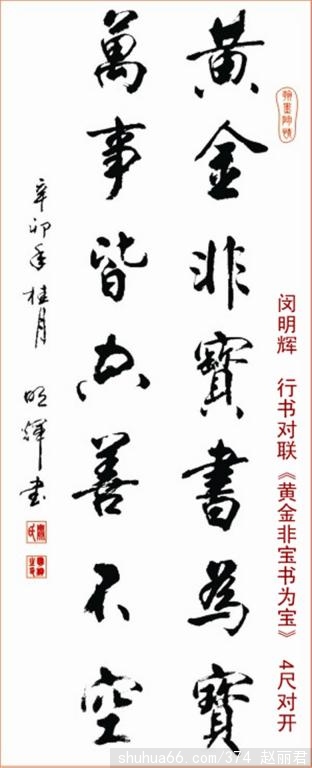 闵明辉 行书对联《黄金非宝书为宝》 4尺对开
黄金非寶書為寶
萬事皆空善不空
辛卯年桂月 明輝書
shuhua66.com/374 赵丽君